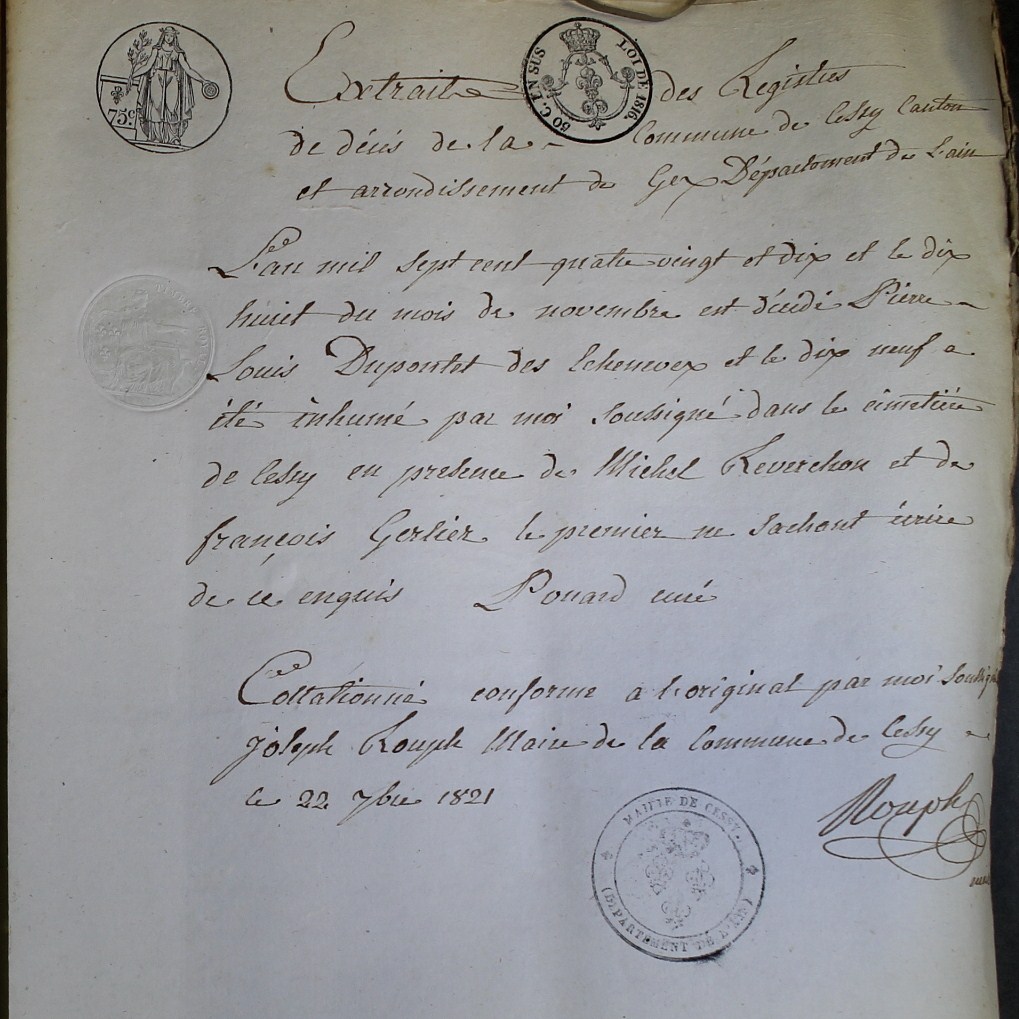 75.c
50 C. EN SUS
LOI DE 1816.
Extrait des Registres
de décès de la Commune de Cessy Canton
et arrondissement de Gex Département de L'ain
L'an mil sept cent quatre vingt et dix et le dix
huiet du mois de novembre est décédé Pierre
Louis Dupontet des Echenevex et le dix neuf a
été inhumé par moi soussigné dans le cimetière
de Cessy en presence de Michel Reverchon et de
françois Gerlier le premier ne sachant écrire
de ce enquis Ponard curé
Collationné conforme a l'original par moi Soussigné
joseph Rouph Maire de la Commune de Cessy
le 22 7bre 1821
Rouph
MAIRIE DE CESSY.
(DÉPARTEMENT DE L'AIN)